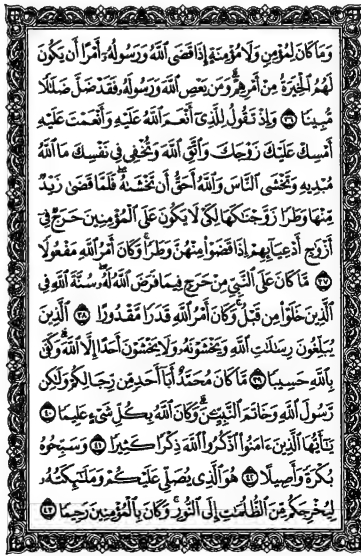 وَمَا كَانَ لِمُؤْمِنٍ وَلَا مُؤْمِنَةٍ إِذَا قَضَى ٱللَّهُ وَرَسُولُهُۥٓ أَمْرًا أَن يَكُونَ
لَهُمُ ٱلْخِيَرَةُ مِنْ أَمْرِهِمْ ۗ وَمَن يَعْصِ ٱللَّهَ وَرَسُولَهُۥ فَقَدْ ضَلَّ ضَلَٰلًا
مُّبِينًا ٣٦ وَإِذْ تَقُولُ لِلَّذِىٓ أَنْعَمَ ٱللَّهُ عَلَيْهِ وَأَنْعَمْتَ عَلَيْهِ
أَمْسِكْ عَلَيْكَ زَوْجَكَ وَٱتَّقِ ٱللَّهَ وَتُخْفِى فِى نَفْسِكَ مَا ٱللَّهُ
مُبْدِيهِ وَتَخْشَى ٱلنَّاسَ وَٱللَّهُ أَحَقُّ أَن تَخْشَىٰهُ ۖ فَلَمَّا قَضَىٰ زَيْدٌ
مِّنْهَا وَطَرًا زَوَّجْنَٰكَهَا لِكَىْ لَا يَكُونَ عَلَى ٱلْمُؤْمِنِينَ حَرَجٌ فِىٓ
أَزْوَٰجِ أَدْعِيَآئِهِمْ إِذَا قَضَوْا۟ مِنْهُنَّ وَطَرًا ۚ وَكَانَ أَمْرُ ٱللَّهِ مَفْعُولًا
٣٧ مَّا كَانَ عَلَى ٱلنَّبِىِّ مِنْ حَرَجٍ فِيمَا فَرَضَ ٱللَّهُ لَهُۥ ۖ سُنَّةَ ٱللَّهِ فِى
ٱلَّذِينَ خَلَوْا۟ مِن قَبْلُ ۚ وَكَانَ أَمْرُ ٱللَّهِ قَدَرًا مَّقْدُورًا ٣٨ ٱلَّذِينَ
يُبَلِّغُونَ رِسَٰلَٰتِ ٱللَّهِ وَيَخْشَوْنَهُۥ وَلَا يَخْشَوْنَ أَحَدًا إِلَّا ٱللَّهَ ۗ وَكَفَىٰ
بِٱللَّهِ حَسِيبًا ٣٩ مَّا كَانَ مُحَمَّدٌ أَبَآ أَحَدٍ مِّن رِّجَالِكُمْ وَلَٰكِن
رَّسُولَ ٱللَّهِ وَخَاتَمَ ٱلنَّبِيِّـۧنَ ۗ وَكَانَ ٱللَّهُ بِكُلِّ شَىْءٍ عَلِيمًا ٤٠
يَٰٓأَيُّهَا ٱلَّذِينَ ءَامَنُوا۟ ٱذْكُرُوا۟ ٱللَّهَ ذِكْرًا كَثِيرًا ٤١ وَسَبِّحُوهُ
بُكْرَةً وَأَصِيلًا ٤٢ هُوَ ٱلَّذِى يُصَلِّى عَلَيْكُمْ وَمَلَٰٓئِكَتُهُۥ
لِيُخْرِجَكُم مِّنَ ٱلظُّلُمَٰتِ إِلَى ٱلنُّورِ ۚ وَكَانَ بِٱلْمُؤْمِنِينَ رَحِيمًا ٤٣